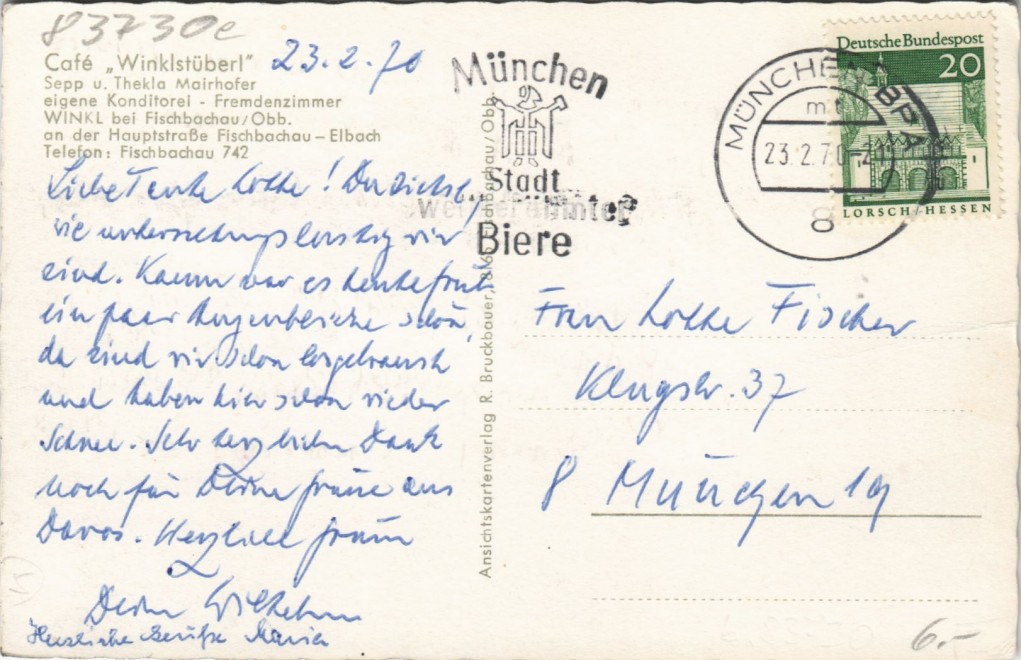 83730e
Café „Winklstüberl" 23.2.70
Sepp u. Thekla Mairhofer
eigene Konditorei - Fremdenzimmer
WINKL bei Fischbachau/Obb.
an der Hauptstraße Fischbachau – Elbach
Telefon: Fischbachau 742
Liebe Tante Lotte! Du siehst,
wie unternehmungslustig wir
sind. Kaum war es heute früh
ein paar schön,
da sind wir schon losgebraust
und haben hier schon wieder
Schnee. Sehr herzlichen Dank
noch für Deine Grüße aus
Davos. Herzliche Grüße
Dein Wilhelm
Herzliche Grüße Maria
Ansichtskartenverlag R. Bruckbauer, Fischbachau/Obb.
München
Stadt
Biere
MÜNCHEN BPA
mt
23.2.70
8
Deutsche Bundespost
20
LORSCH/HESSEN
Frau Lotte Fischer
37
8 München 19
6.-